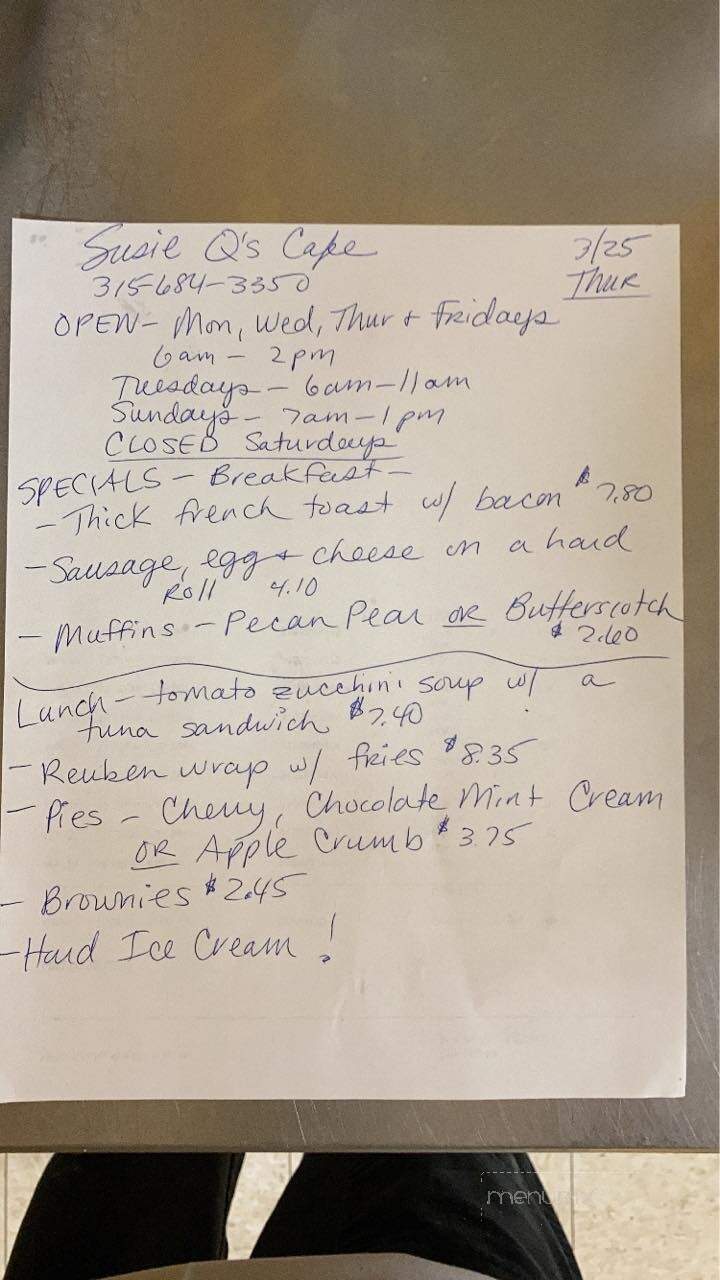 Susie Q's Cafe 3/25
315-684-3350 Thur
OPEN - Mon, Wed, Thur + Fridays
6am - 2pm
Tuesdays - 6am - 11am
Sundays - 7am - 1pm
CLOSED Saturdays
SPECIALS - Breakfast -
- Thick french toast w/ bacon $7.80
- Sausage, egg + cheese on a hard
Roll 4.10
- Muffins - Pecan Pear OR Butterscotch
$2.60
Lunch - tomato zucchini soup w/ a
tuna sandwich $7.40
- Reuben wrap w/ fries $8.35
- Pies - Cherry, Chocolate Mint Cream
OR Apple Crumb $3.75
- Brownies $2.45
- Hard Ice Cream!